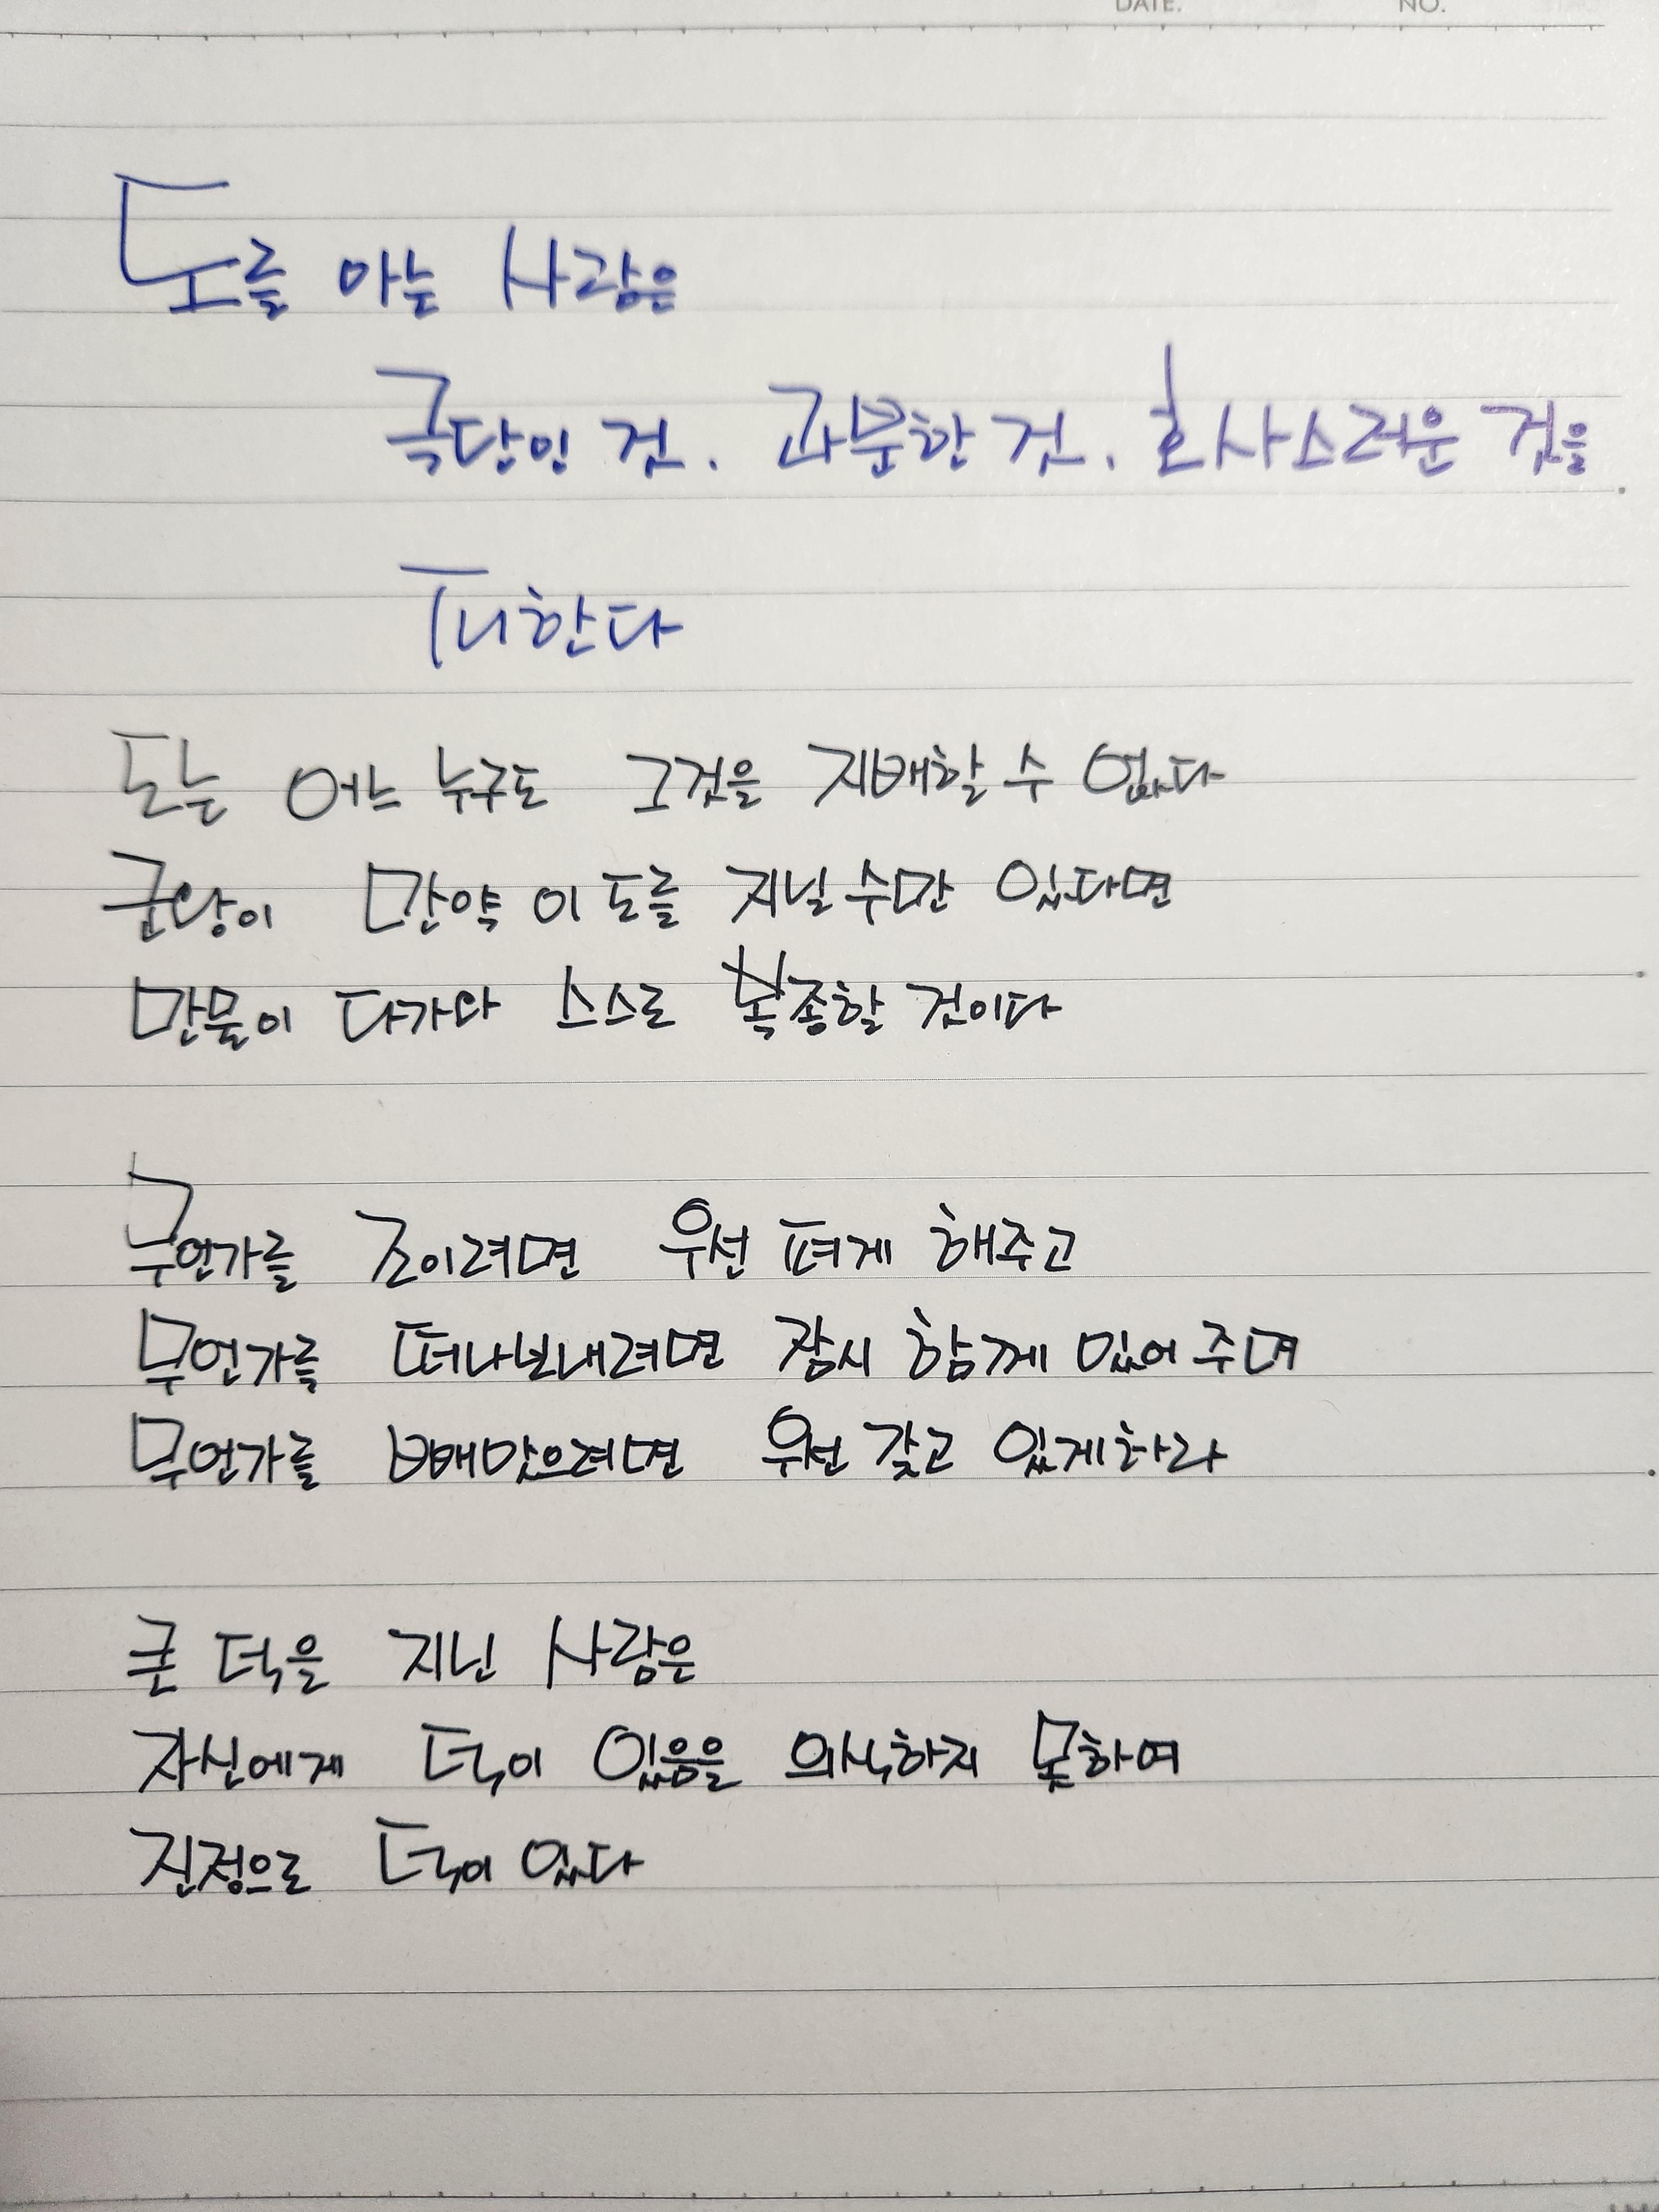 DATE. NO.
도를 아는 사람은
극단인 것. 과분한 것. 호사스러운 것을
피한다
도는 어느 누구도 그것을 지배할 수 없다
군왕이 만약 이 도를 지닐 수만 있다면
만물이 다가와 스스로 복종할 것이다
무언가를 조이려면 우선 펴게 해주고
무언가를 떠나보내려면 잠시 함께 있어 주며
무언가를 빼앗으려면 우선 갖고 있게하라
큰 덕을 지닌 사람은
자신에게 덕이 있음을 의식하지 못하여
진정으로 덕이 있다